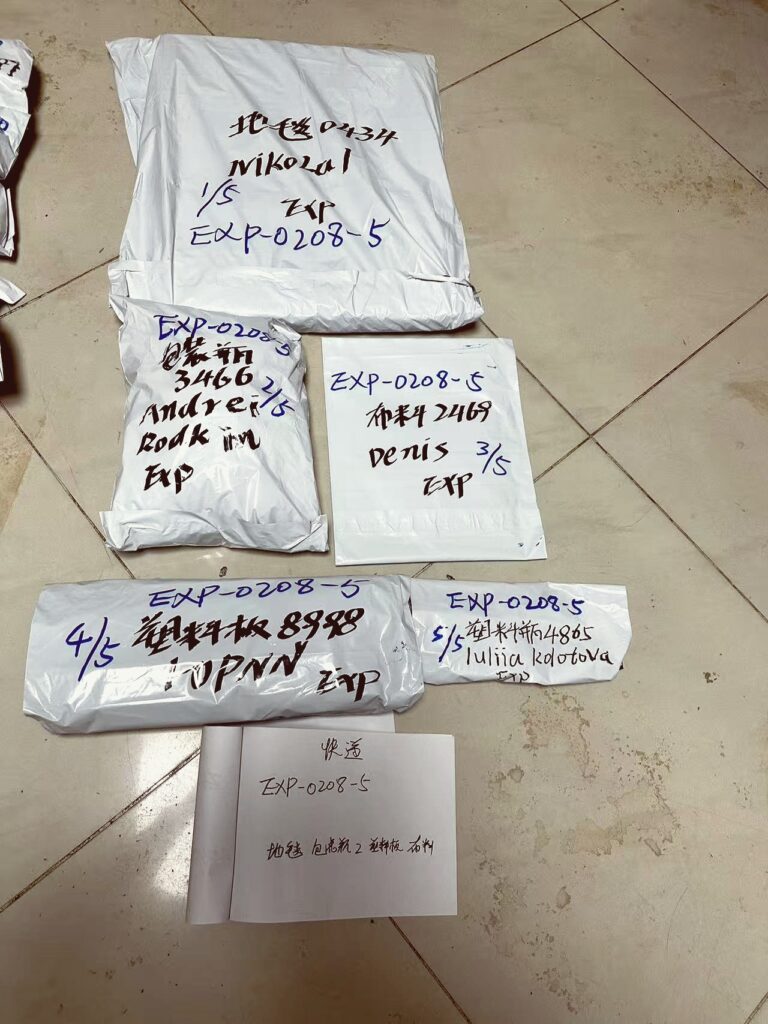 地毯0434
Nikolal
1/5
EXP
EXP-0208-5
EXP-0208-5
包装瓶
3466
2/5
Andrei
Rodkin
Exp
EXP-0208-5
布料2469
Denis
3/5
EXP
EXP-0208-5
4/5
塑料板8998
Exp
EXP-0208-5
5/5
塑料瓶4865
Iuliia kolotova
Exp
快递
EXP-0208-5
地毯 包装瓶2 塑料板 布料